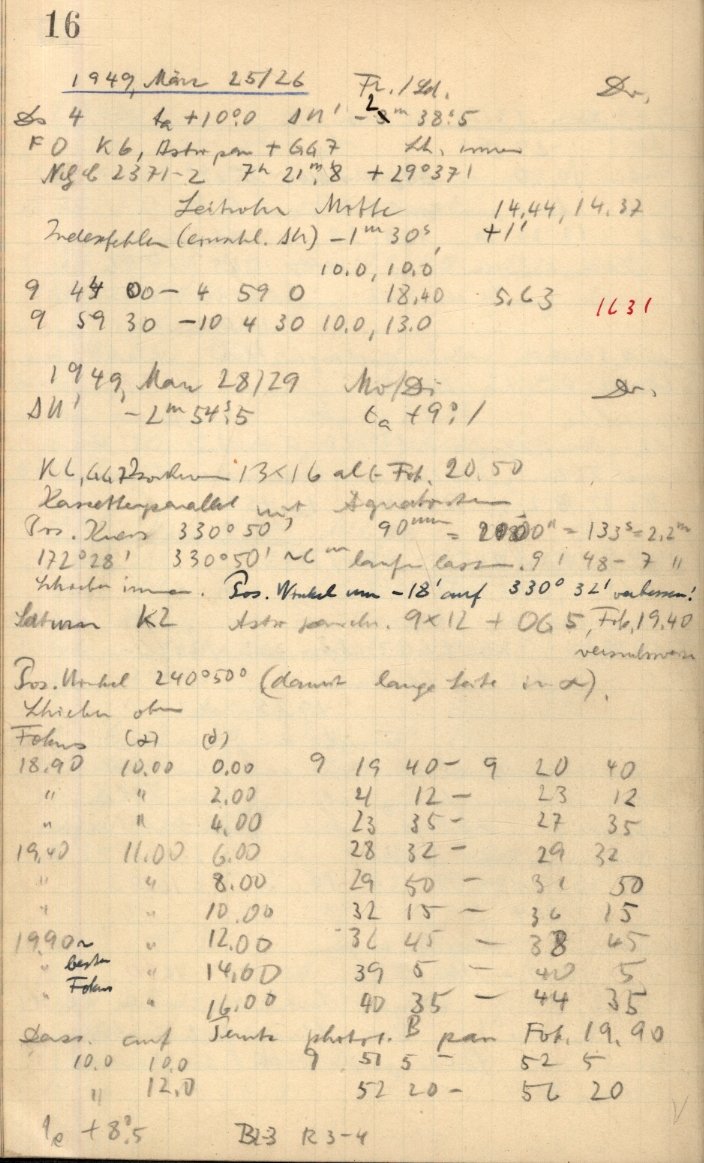 16
1949, März 25/26 Fr./Sd. Dr.
Ds 4 ta +10°.0 ΔU' -2m 38s.5
F 0 K6, Astro pan + GG7 innen
NGC 2371-2 7h 21m.8 +29°37'
Leitrohr Mitte 14.44, 14.37
Indexfehler (einschl. ΔU) -1m 30s, +1'
10.0, 10.0
9 44 00 - 4 59 0 18.40 5.63 1631
9 59 30 - 10 4 30 10.0, 13.0
1949, März 28/29 Mo/Di Dr.
ΔU' -2m 54s.5 ta +9°.1
K6, GG7 13×16 alt Fok. 20.50
Kassette parallel mit Äquator
Pos. Kreis 330°50' 90mm = 00" = 133s = 2.2m
172°28' 330°50' ~6m laufen lassen. 9 1 48 - 7 "
Schieber innen. Pos. Winkel um -18' auf 330° 32' verbessern!
Saturn K2 Astro panchr. 9×12 + OG 5, Fok. 19.40
versuchsweise
Pos. Winkel 240°50' (damit lange Seite in α).
Schieber oben
Fokus (α) (δ)
18.90 10.00 0.00 9 19 40 - 9 20 40
" " 2.00 21 12 - 23 12
" " 4.00 23 35 - 27 35
19.40 11.00 6.00 28 32 - 29 32
" " 8.00 29 50 - 31 50
" " 10.00 32 15 - 36 15
19.90 ~ " 12.00 36 45 - 38 45
" bester " 14.00 39 5 - 40 5
" Fokus " 16.00 40 35 - 44 35
Dass. auf photo. B pan Fok. 19.90
10.0 10.0 9 51 5 - 52 5
" 12.0 52 20 - 56 20
te +8°.5 B2-3 R 3-4